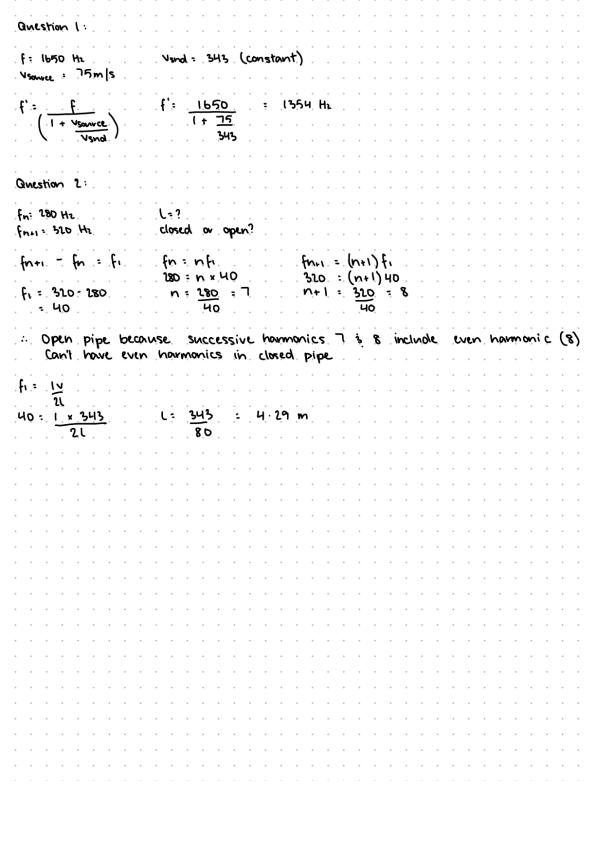 Question 1:
f = 1650 Hz Vsnd = 343 (constant)
Vsource = 75m/s
f' = f / (1 + Vsource/Vsnd) f' = 1650 / (1 + 75/343) = 1354 Hz
Question 2:
fn = 280 Hz L = ?
fn+1 = 320 Hz closed or open?
fn+1 - fn = f1 fn = nf1 fn+1 = (n+1) f1
280 = n × 40 320 = (n+1) 40
f1 = 320 - 280 n = 280/40 = 7 n+1 = 320/40 = 8
= 40
∴ Open pipe because successive harmonics 7 & 8 include even harmonic (8)
Can't have even harmonics in closed pipe
f1 = 1v/2L
40 = 1 × 343 / 2L L = 343/80 = 4.29 m